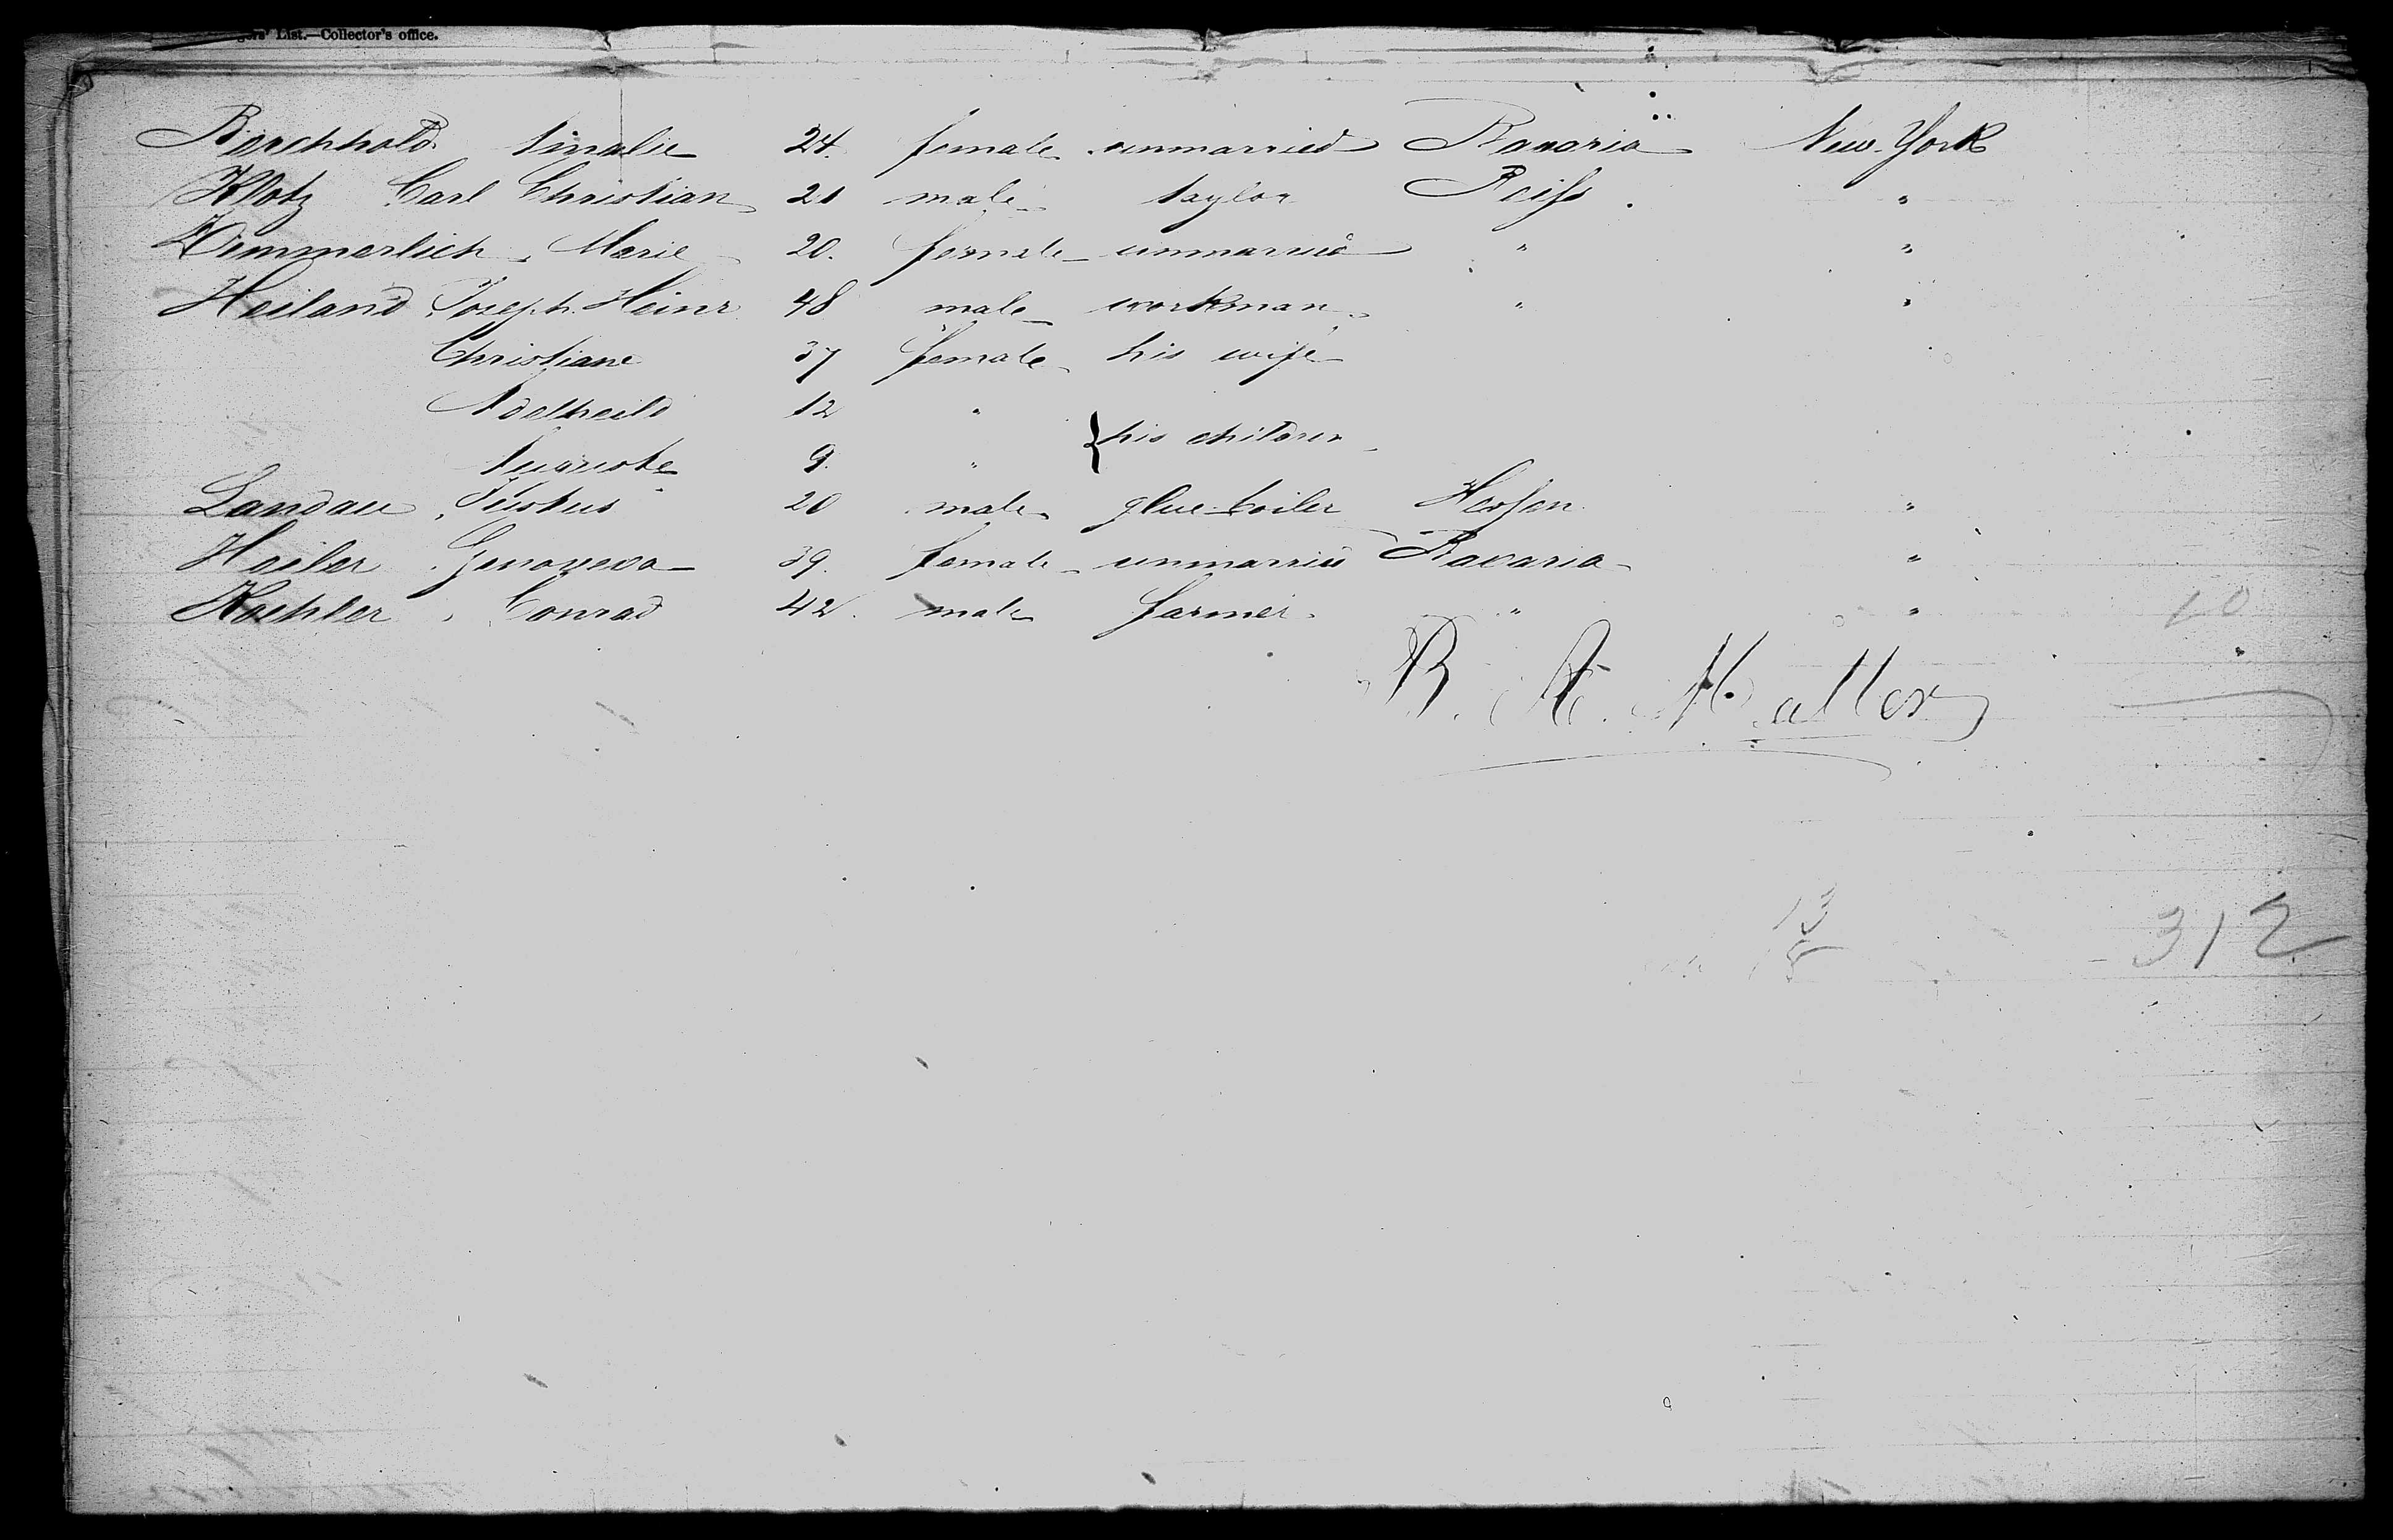 gers' List.—Collector's office.
Berchhold Amalie 24. female unmarried Bavaria New-York
Klotz Carl Christian 21 male taylor Reiss. "
Kemmerlich, Marie 20. female unmarried " "
Heiland Joseph Heinr 48 male workman " "
Christiane 37 female his wife
Adelheid 12 "
{ his children
Auguste 9. "
Landau, Justus 20 male glue-boiler Hessen "
Heiler Genoveva 39. female unmarried Bavaria "
Koehler, Conrad 42. male farmer " "
10
13
5
312